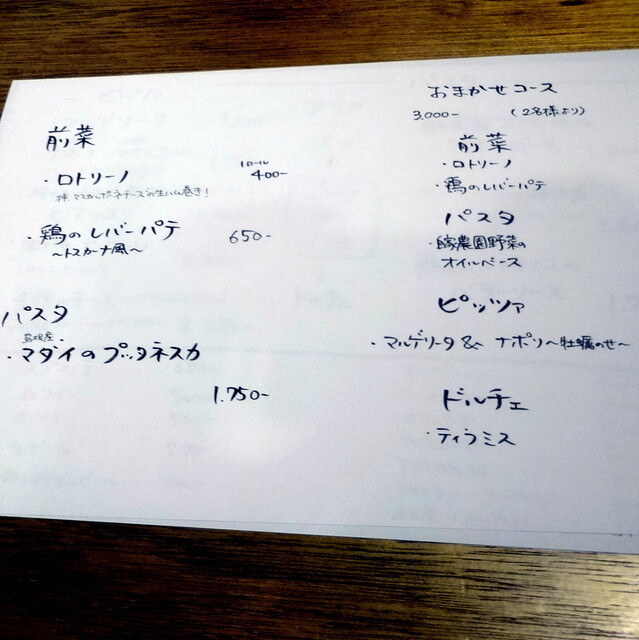 前菜
・ロトリーノ 1ロール 400-
柿、マスカルポーネチーズの生ハム巻き！
・鶏のレバーパテ 650-
〜トスカーナ風〜
パスタ
島根産
・マダイのプッタネスカ
1.750-
おまかせコース
3.000- (2名様より)
前菜
・ロトリーノ
・鶏のレバーパテ
パスタ
・自家農園野菜の
オイルベース
ピッツァ
・マルゲリータ & ナポリ〜牡蠣のせ〜
ドルチェ
・ティラミス